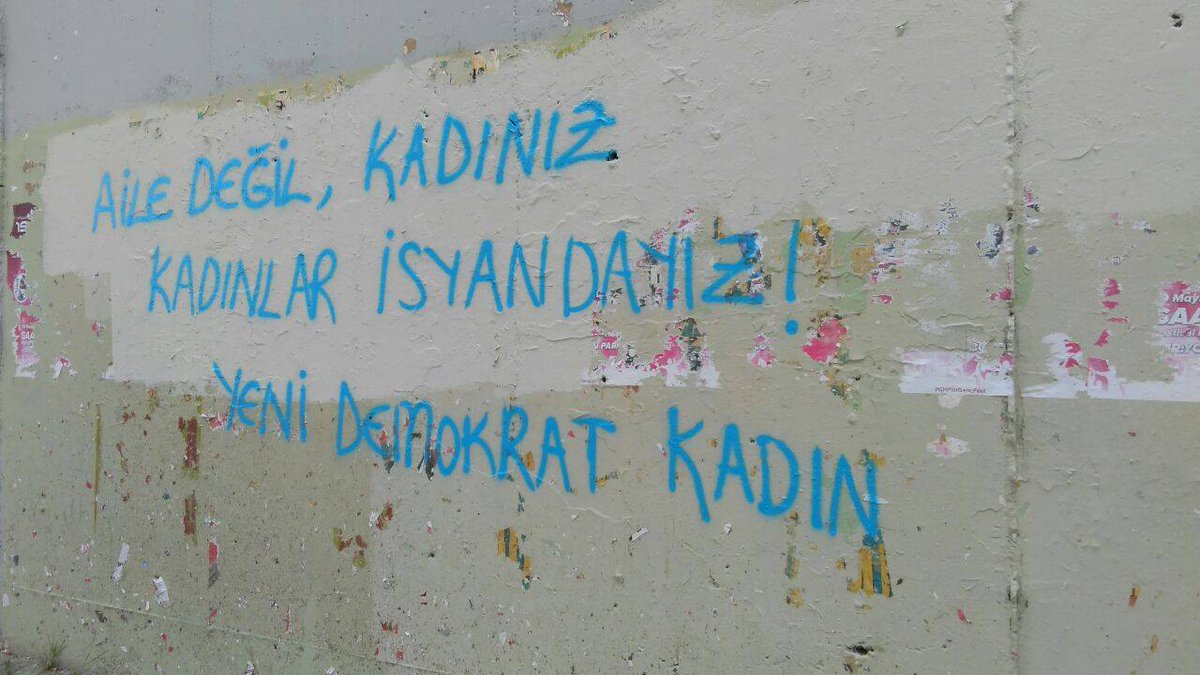 AİLE DEĞİL, KADINIZ
KADINLAR İSYANDAYIZ!
YENİ DEMOKRAT KADIN